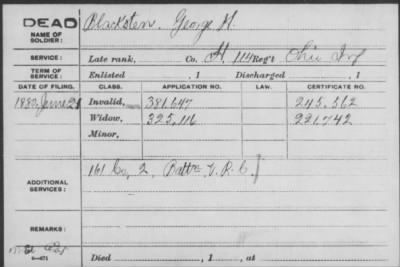 DEAD Blacksten, George H.
NAME OF SOLDIER:
SERVICE: Late rank, Co. H, 114 Reg't Ohio Inf
TERM OF SERVICE: Enlisted , 1 Discharged , 1
DATE OF FILING. CLASS. APPLICATION NO. LAW. CERTIFICATE NO.
1880, June 21 Invalid, 381,647 245,562
Widow, 325,116 221,742
Minor,
ADDITIONAL SERVICES: 161 Co, 2, Batt. V. R. C.
REMARKS:
6—071
Died , 1 , at